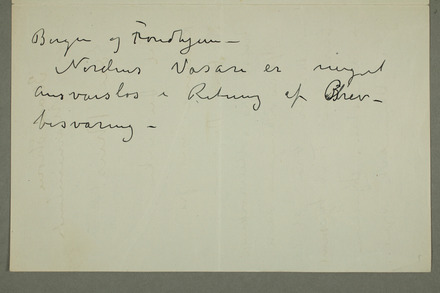 Bergen og Trondhjem –
Nordens Vasari er meget
ansvarsløs i Retning af Brev–
besvaring –